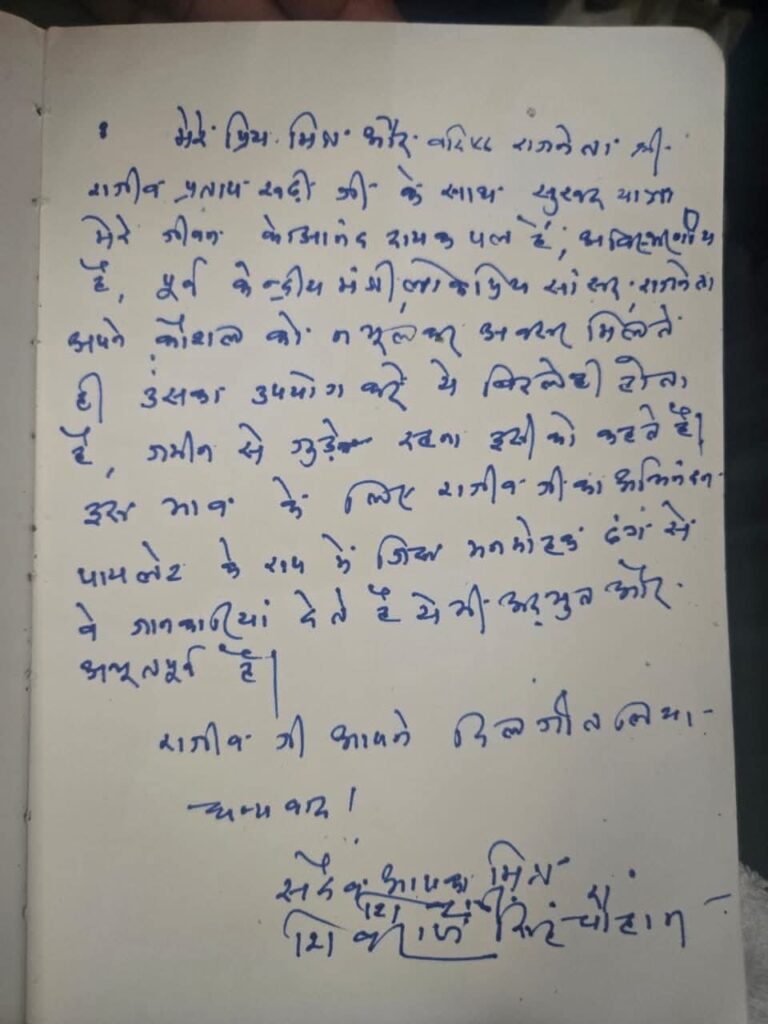 मेरे प्रिय मित्र और वरिष्ठ राजनेता श्री
राजीव प्रताप रूढ़ी जी के साथ सुखद यात्रा
मेरे जीवन के आनंद दायक पल हैं, अविस्मरणीय
है, पूर्व केन्द्रीय मंत्री, लोकप्रिय सांसद, राजनेता
अपने कौशल को न भूलकर अवसर मिलते
ही उसका उपयोग करे ये विरलेही होता
है, जमीन से जुड़े रहना इसी को कहते है।
इस भाव के लिए राजीव जी का अभिनंदन
पायलेट के रूप में जिस मनमोहक ढंग से
वे जानकारियां देते है ये भी अद्भुत और
अभूतपूर्व है।
राजीव जी आपने दिल जीत लिया
धन्यवाद।
सदैव आपका मित्र
शिवराज सिंह चौहान